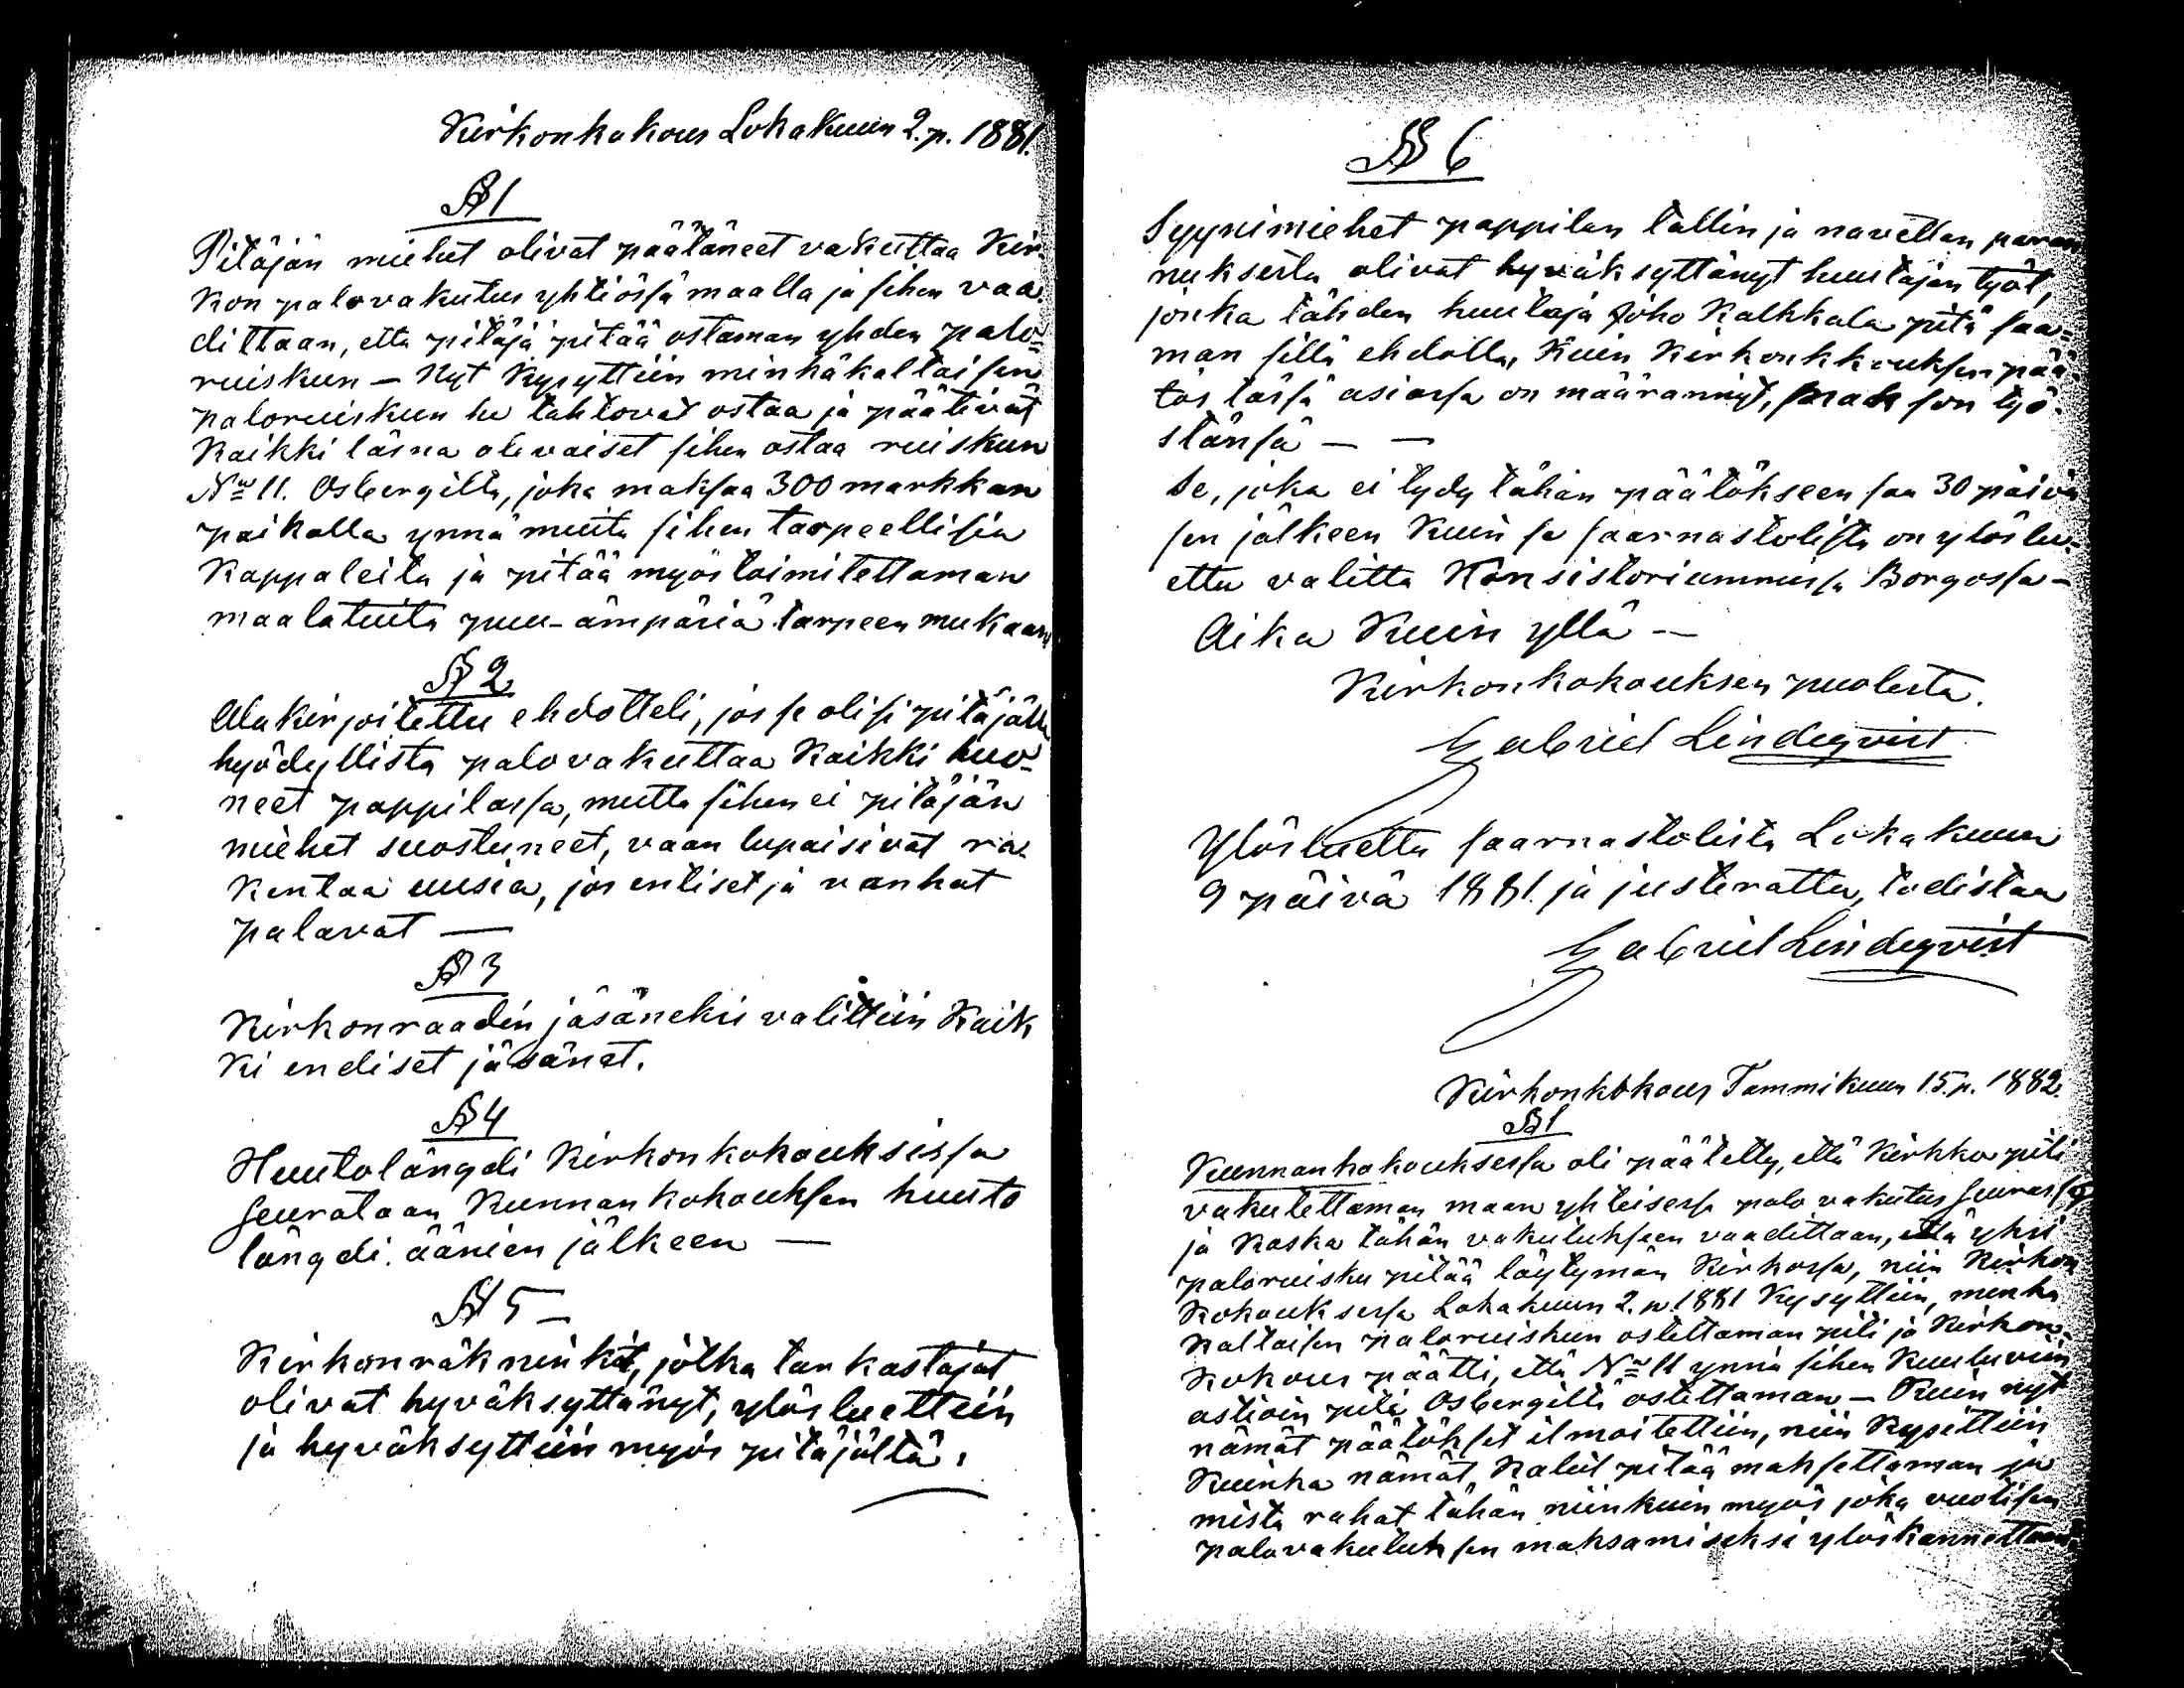 Kirkonkokous Lokakuun 2. p. 1881.
§ 1
Pitäjän miehet olivat päätäneet vakuttaa Kir-
kon palovakutus yhtiössä maalla ja sihen vaa
dittaan, etta pitäjä pitää ostaman yhden palo=
ruiskun — Nyt kysyttiin minkäkaltaisen
paloruiskun he tahtovat ostaa ja päätivät
Kaikki läsna olevaiset sihen ostaa ruiskun
No 11. Osbergilta, joka maksaa 300 markkan
paikalla ynnä muita sihen tarpeellisia
Kappaleita ja pitää myös toimitettaman
maalatuita puu-ämpäriä tarpeen mukaan
§ 2
Alakirjoitettu ehdotteli, jos se olisi pitäjälle
hyödyllistä palovakuttaa kaikki huo-
neet pappilassa, mutta sihen ei pitäjän
miehet suostuneet, vaan lupaisivat ra-
kentaa uusia, jos entiset ja vanhat
palavat —
§ 3
Kirkonraadin jäsäneksi valittiin Kaik
ki endiset jäsänet.
§ 4
Huutolängdi Kirkonkokouksissa
seurataan Kunnankokouksen huuto
längdi äänien jälkeen —
§ 5 —
Kirkonräkninkit, jotka tarkastajat
olivat hyväksyttänyt, ylösluettiin
ja hyväksyttiin myös pitäjältä.
§ 6
Syynimiehet pappilan tallin ja navettan paran
nuksesta olivat hyväksyttänyt huutajan työt,
jonka tähden huutaja Joho Kalkkala pitä saa=
man sillä ehdolla, kuin Kirkonkkouksen pää-
tös tässä asiassa on määrannyt, maksson työ-
stänsä — —
Se, joka ei tydy tähän päätökseen saa 30 päivä
sen jälkeen kuin se saarnastolista on ylöslu-
ettu valitta Konsistoriummissa Borgossa —
Aika Kuin yllä —
Kirkonkokouksen puolesta.
Gabriel Lindeqvist
Ylösluettu saarnastolista Lokakuun
9 päivä 1881. ja justerattu, todistaa
Gabriel Lindeqvist
Kirkonkokous Tammikuun 15. p. 1882.
§ 1
Kunnankokouksessa oli päätetty, että Kirkko piti
vakutettaman maan yhteisessa palo vakutus seurassa
ja koska tähän vakutuksen vaadittaan, että yksi
paloruisku pitää löytymän Kirkossa, niin Kirkon
Kokouksessa Lokakuun 2. p. 1881 Kysyttiin, minka
kaltaisen paloruiskun ostettaman piti ja Kirkon-
kokous päätti, että No 11 ynnä sihen kuuluvien
astioin piti Osbergilti ostettaman — Kuin nyt
nämät päätökset ilmoitettiin, niin Kysittiin
Kuinka nämät kalut pitää maksettaman ja
mistä rahat tähän niinkuin myös joka vuotisen
palovakutuksen maksamiseksi ylöskannettaan